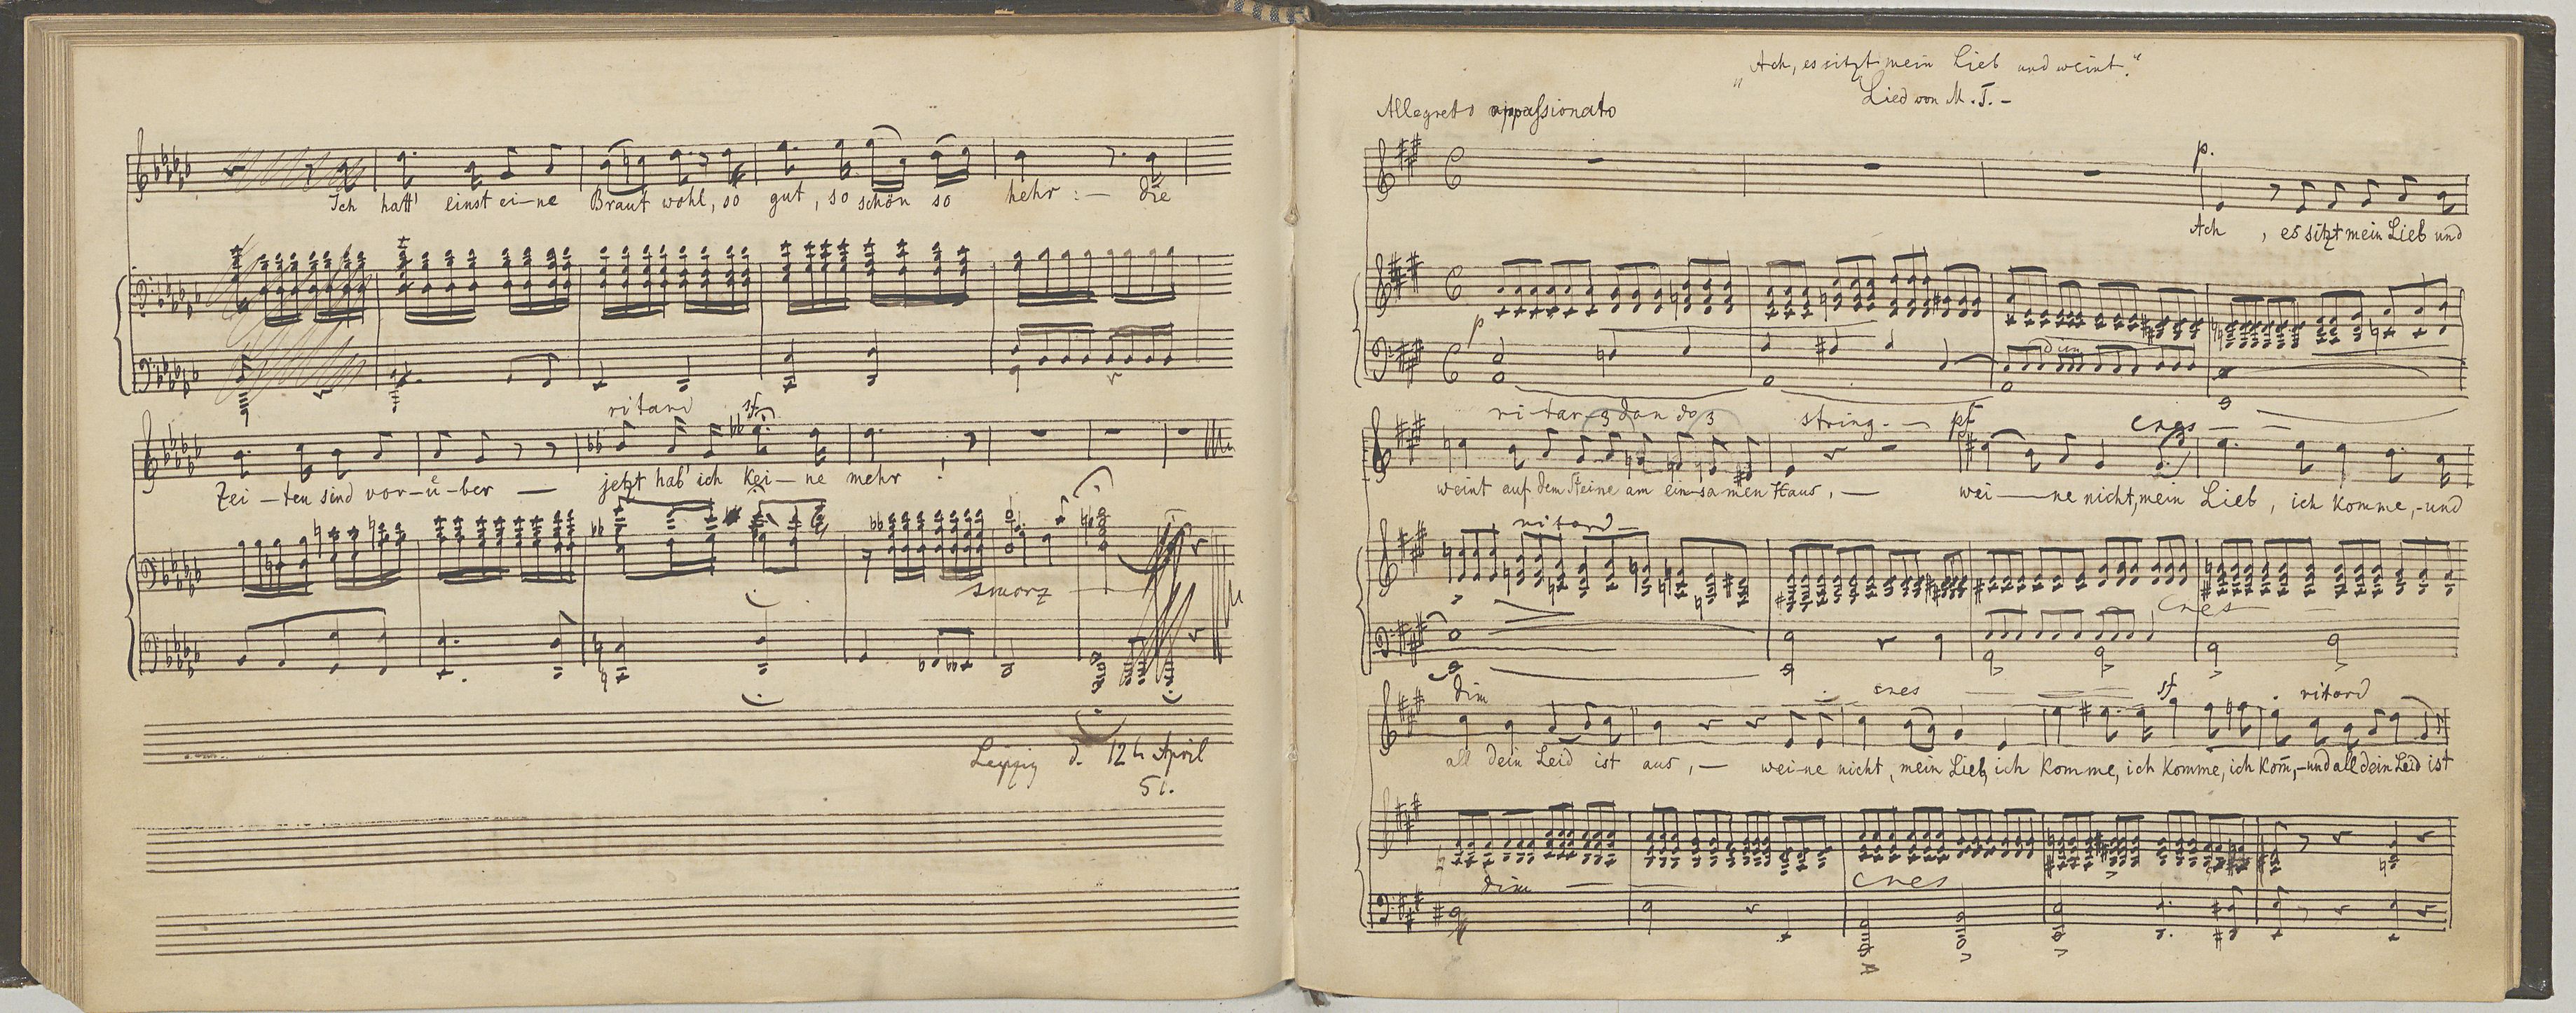 Ich hatt' einst ei–ne Braut wohl, so gut, so schön so hehr :– die
ritard sf
Zei–ten sind vor–ü–ber — jetzt hab' ich kei–ne mehr !
smorz
Leipzig d. 12t April
51.
„Ach, es sitzt mein Lieb und weint."
Lied von M. T. –
Allegretto appassionato
p.
Ach , es sitzt mein Lieb und
p
ri–tar–dan do string. — pf cres —
3 3
weint auf dem Steine am ein–samen Haus, — wei—ne nicht, mein Lieb, ich komme,–und
ritard —
cres —
dim cres — sf ritard
all dein Leid ist aus, — wei–ne nicht, mein Lieb, ich komme, ich komme, ich kom̄,–und all dein Leid ist
dim — cres